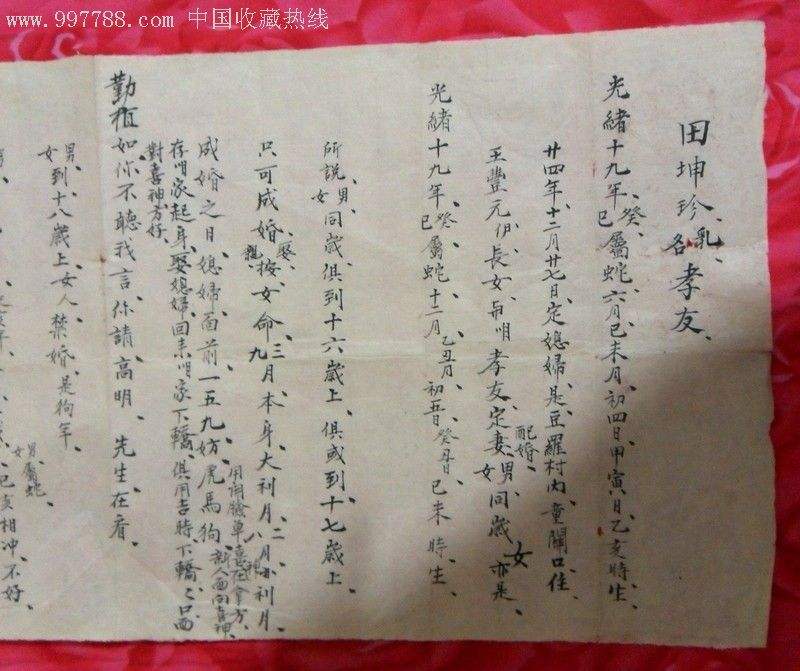 www.997788.com 中国收藏热线
田坤珍、乳名孝友、
光緒十九年癸巳、屬蛇、六月己未月、初四日、甲寅日、乙亥時生、
廿四年、十二月廿七日、定媳婦、是豆羅村内童關口住、
王豐元伊長女、與咱孝友定妻、配婚、男女同歲、亦是
女
光緒十九年、癸巳屬蛇、十二月、乙丑月、初五日、癸丑日、己未時生、
所說男女同歲、俱到十六歲上、俱或到十七歲上、
只可成婚、娶親、按女命、三九月、本身大利月、二八月、小利月、
成婚之日、媳婦面前一五九妨虎馬狗、
用開臉單、喜神拿方、新人面向喜神
存咱家起身、娶媳婦回来、咱家下轎、俱用吉時下轎之、口面
對喜神方好、
勤植如你不聽我言、你請高明、先生在看、
男女到十八歲上、女人禁婚、是狗年、
男女屬蛇、
巳亥相冲、不好、